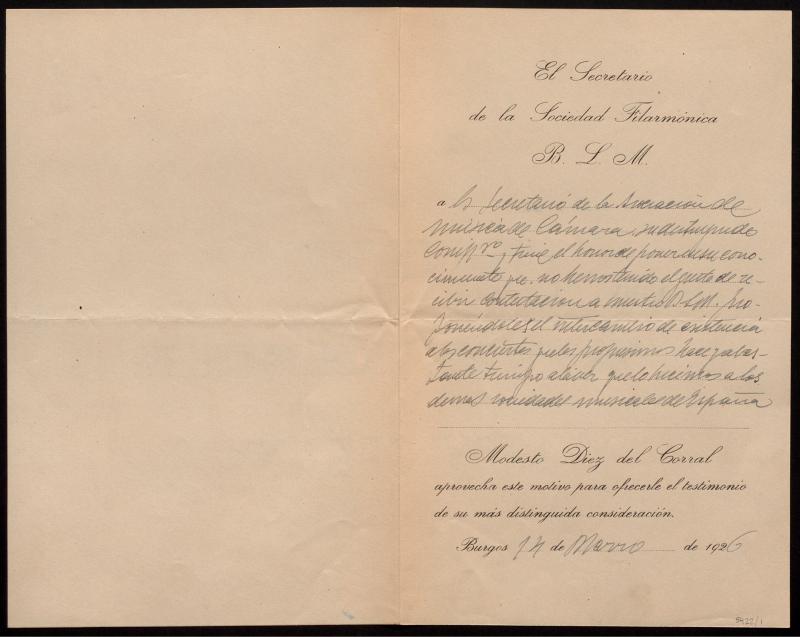 El Secretario
de la Sociedad Filarmónica
B. L. M.
a la Secretario de la Asociación de
Música de Cámara, su distinguido
y tiene el honor de poner en su cono-
cimiento que no hemos tenido el gusto de re-
cibir contestación a nuestro B.L.M. pro-
poniéndoles el intercambio de asistencia
a los conciertos que les propusimos hace ya bas-
tante tiempo que lo hicimos a las
demas sociedades musicales de España
Modesto Diez del Corral
aprovecha este motivo para ofrecerle el testimonio
de su más distinguida consideración.
Burgos 14 de Marzo de 1926
5422/1